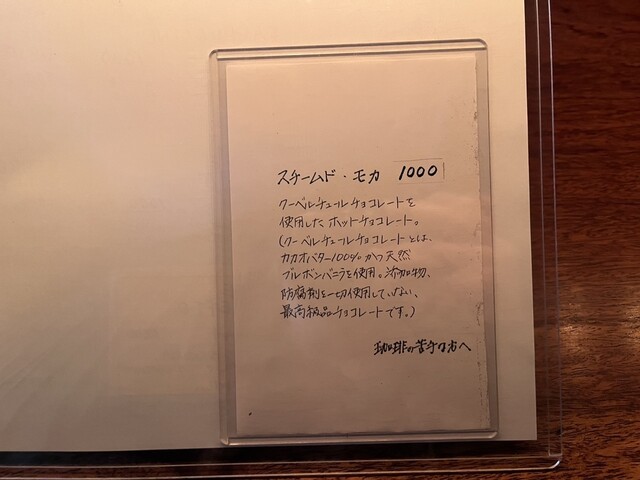 スチームド・モカ 1000
クーベルチュールチョコレートを
使用したホットチョコレート。
(クーベルチュールチョコレートとは、
カカオバター100%かつ天然
ブルボンバニラを使用。添加物、
防腐剤を一切使用していない、
最高級品チョコレートです。)
珈琲の苦手な方へ